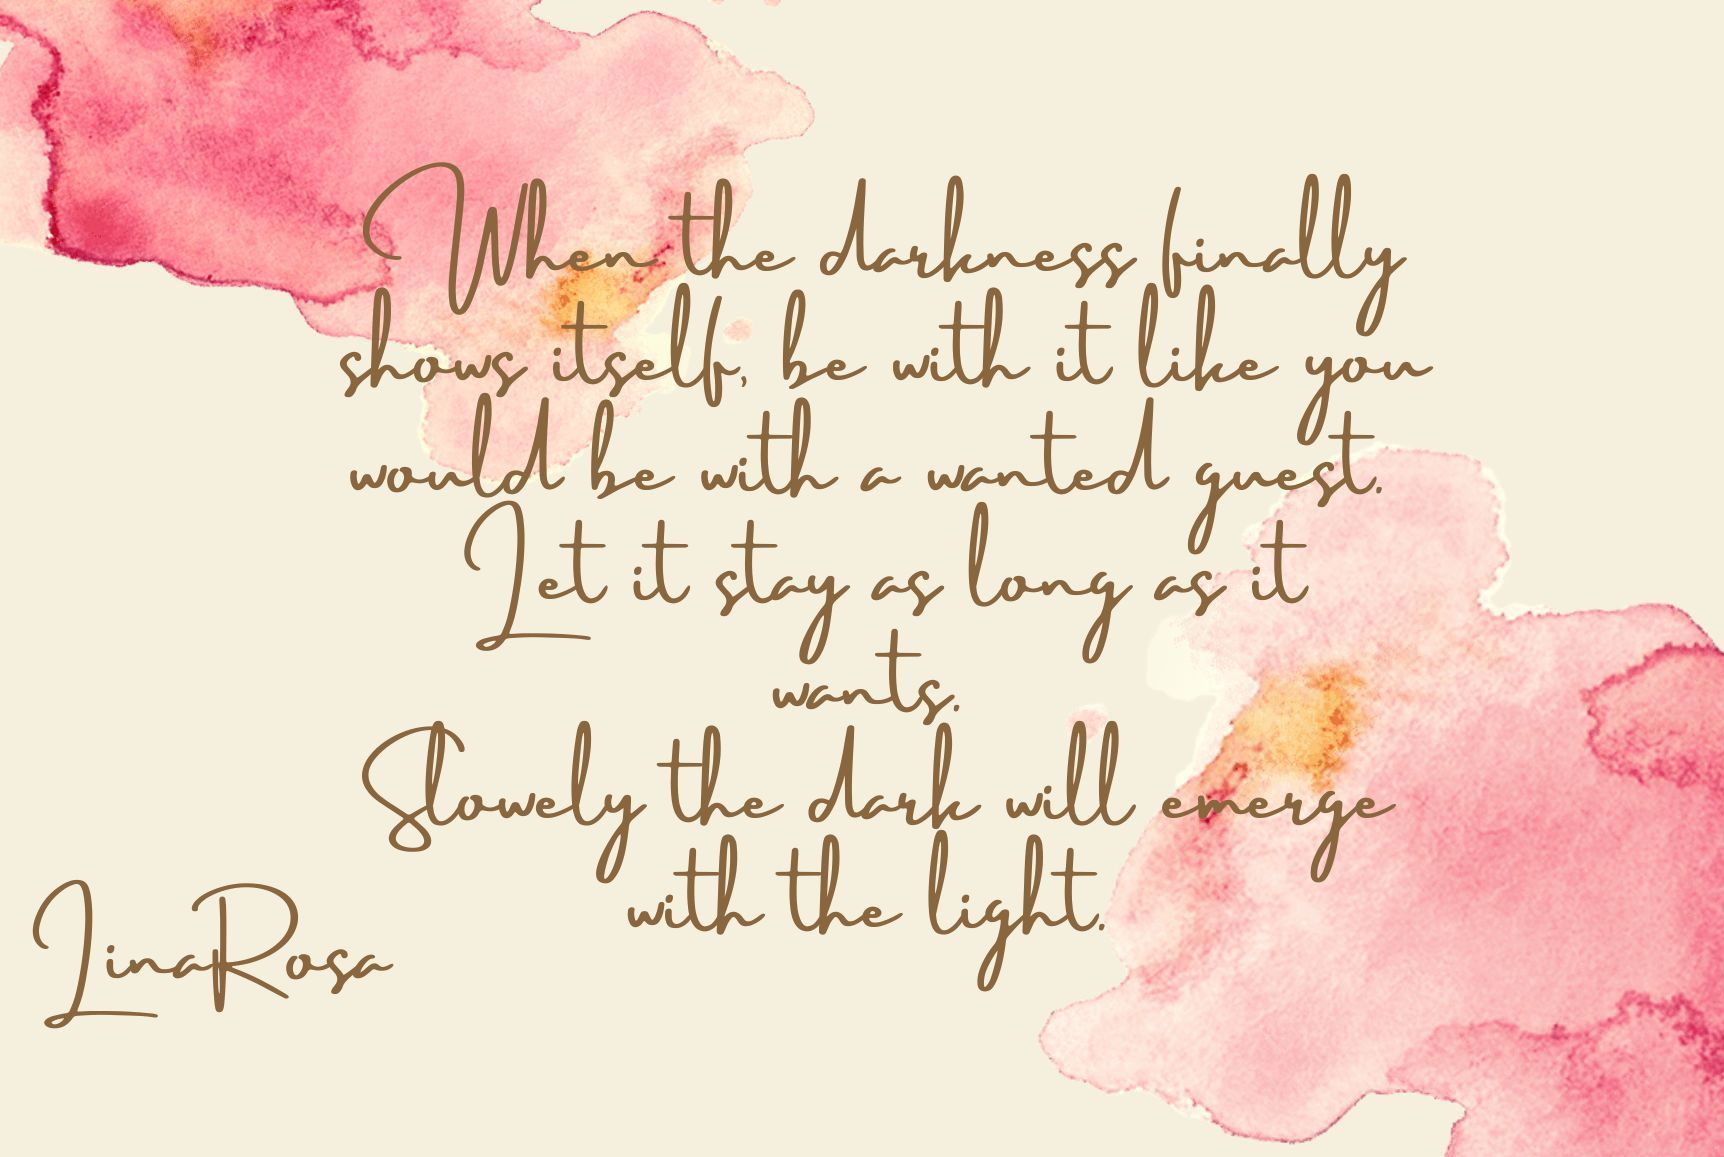 When the darkness finally
shows itself, be with it like you
would be with a wanted guest.
Let it stay as long as it
wants.
Slowely the dark will emerge
with the light.
LinaRosa